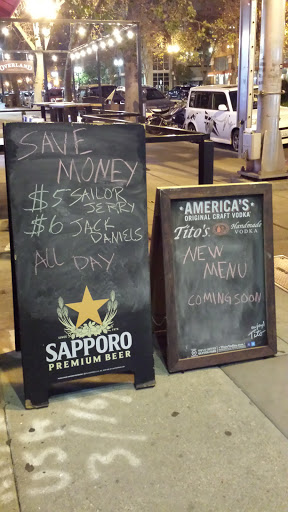 OVERLAND
SAVE
MONEY
$5 SAILOR
JERRY
$6 JACK
DANIELS
ALL DAY
SAPPORO
PREMIUM BEER
AMERICA'S
ORIGINAL CRAFT VODKA
Tito's Handmade
VODKA
NEW
MENU
COMING SOON
Tito